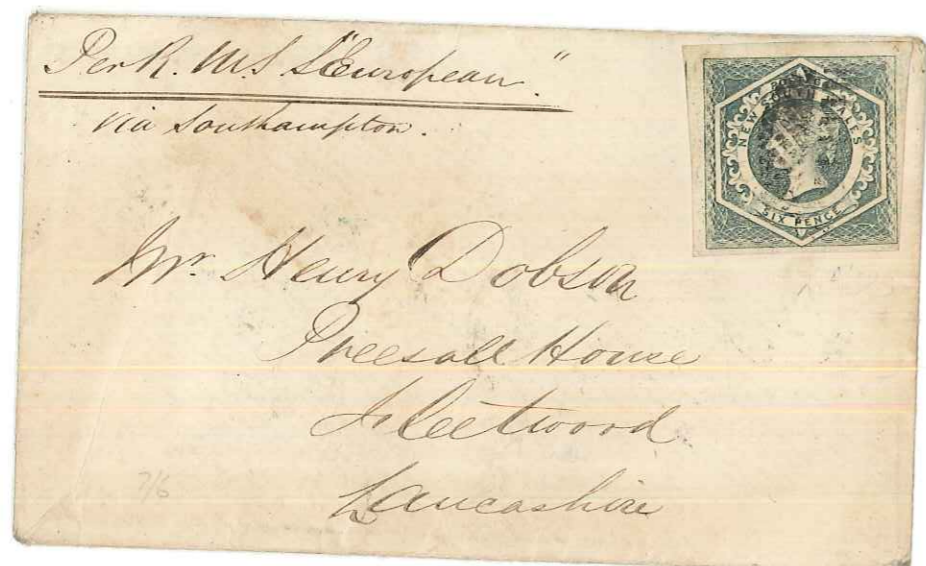 Per R. M.S S "European"
via Southampton.
POSTAGE
NEW SOUTH WALES
SIX PENCE
Mr. Henry Dobson
Preesall House
Fleetwood
Lancashire
7/6